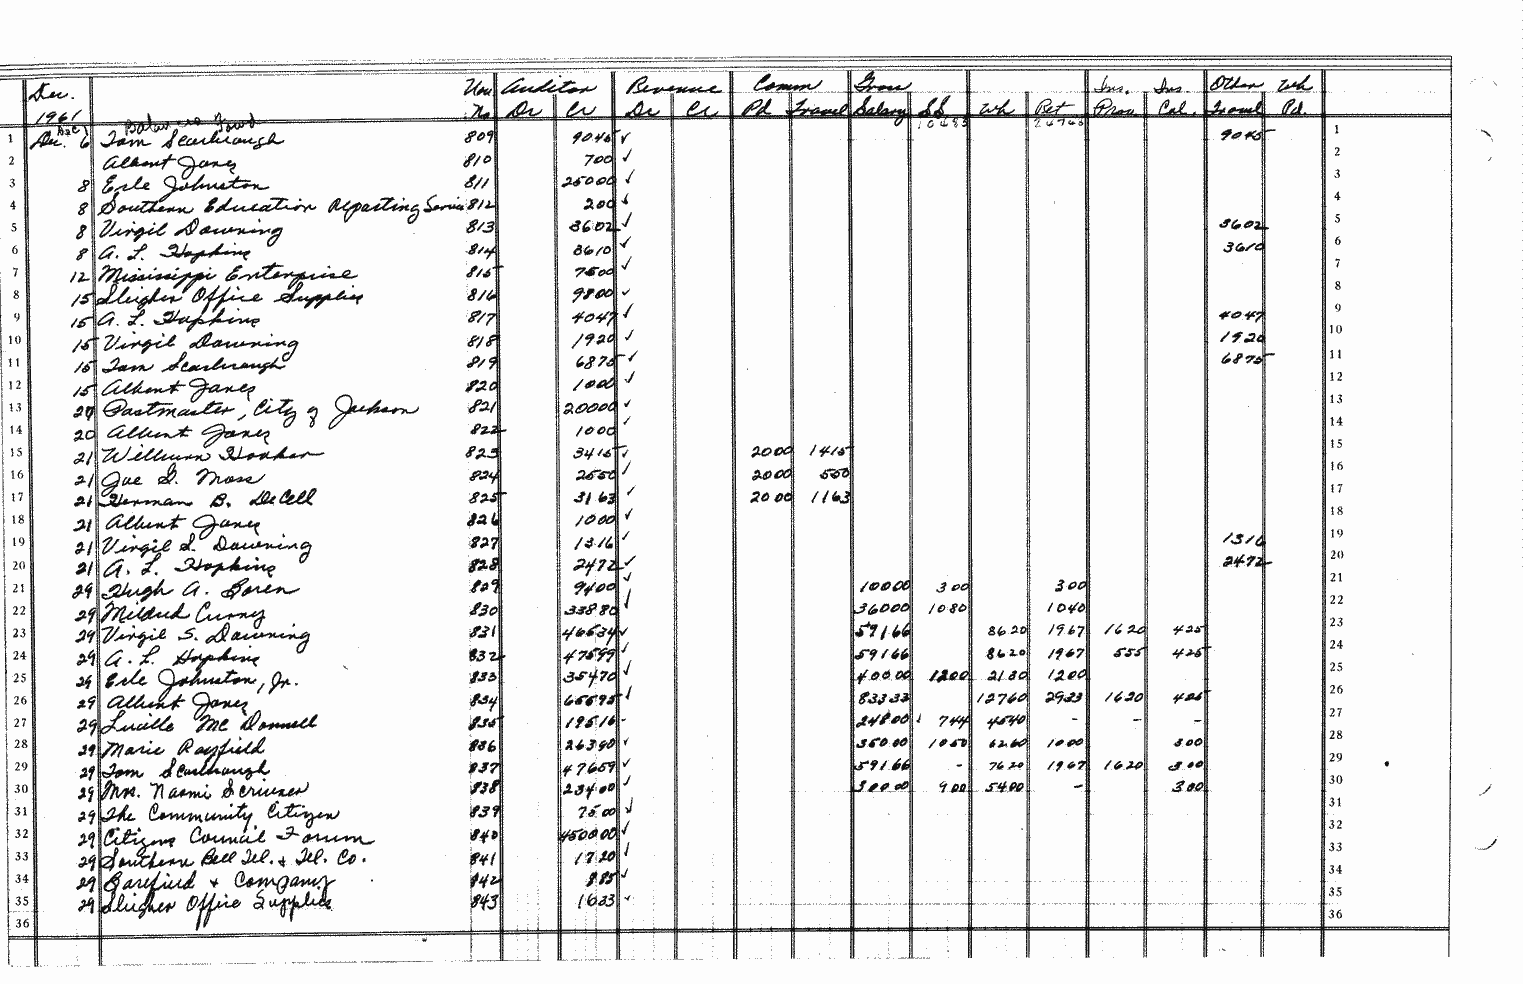 Dec. Vou Auditor Revenue Comm Gross Ins. Ins. Other Wh
1961 Balances Forwd No Dr Cr Dr Cr Pd Travel Salary SS Wh Ret Prov. Col. Travel Pd.
1 Dec. 6 Tom Scarbrough 809 9045 ✓ 9045 1
2 Albert Jones 810 700 ✓ 2
3 8 Erle Johnston 811 25000 ✓ 3
4 8 Southern Education Reporting Service 812 200 ✓ 4
5 8 Virgil Downing 813 3602 ✓ 3602 5
6 8 A. L. Hopkins 814 3610 ✓ 3610 6
7 12 Mississippi Enterprise 815 7500 ✓ 7
8 15 Sleigher Office Supplies 816 9800 ✓ 8
9 15 A. L. Hopkins 817 4047 ✓ 4047 9
10 15 Virgil Downing 818 1920 ✓ 1920 10
11 15 Tom Scarbrough 819 6875 ✓ 6875 11
12 15 Albert Jones 820 1000 ✓ 12
13 20 Postmaster, City of Jackson 821 20000 ✓ 13
14 20 Albert Jones 822 1000 ✓ 14
15 21 Wilburn Hooker 823 3415 ✓ 2000 1415 15
16 21 Joe G. Moss 824 2550 ✓ 2000 550 16
17 21 Herman B. DeCell 825 3163 ✓ 2000 1163 17
18 21 Albert Jones 826 1000 ✓ 18
19 21 Virgil S. Downing 827 1316 ✓ 1316 19
20 21 A. L. Hopkins 828 2472 ✓ 2472 20
21 29 Hugh A. Boren 829 9400 ✓ 10000 300 300 21
22 29 Mildred Curney 830 33880 ✓ 36000 1080 1040 22
23 29 Virgil S. Downing 831 46534 ✓ 59166 8620 1967 1620 425 23
24 29 A. L. Hopkins 832 47599 ✓ 59166 8620 1967 555 425 24
25 29 Erle Johnston, Jr. 833 35470 ✓ 40000 1200 2130 1200 25
26 29 Albert Jones 834 65595 ✓ 83333 12760 2933 1620 425 26
27 29 Lucille Mc Donnell 835 19516 - 24800 744 4540 - - - 27
28 29 Marie Rayfield 836 26390 ✓ 35000 1050 6260 1000 300 28
29 29 Tom Scarbrough 837 47659 ✓ 59166 - 7620 1967 1620 300 29
30 29 Mrs. Naomi Scrivner 838 23400 ✓ 30000 900 5400 - 300 30
31 29 The Community Citizen 839 7500 ✓ 31
32 29 Citizens Council Forum 840 450000 ✓ 32
33 29 Southern Bell Tel. & Tel. Co. 841 1720 ✓ 33
34 29 Barefield + Company 842 885 ✓ 34
35 29 Sleigher Office Supplies 843 1633 ✓ 35
36 36